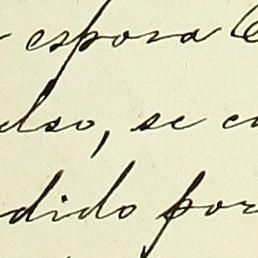 esposa
so, se
dido por